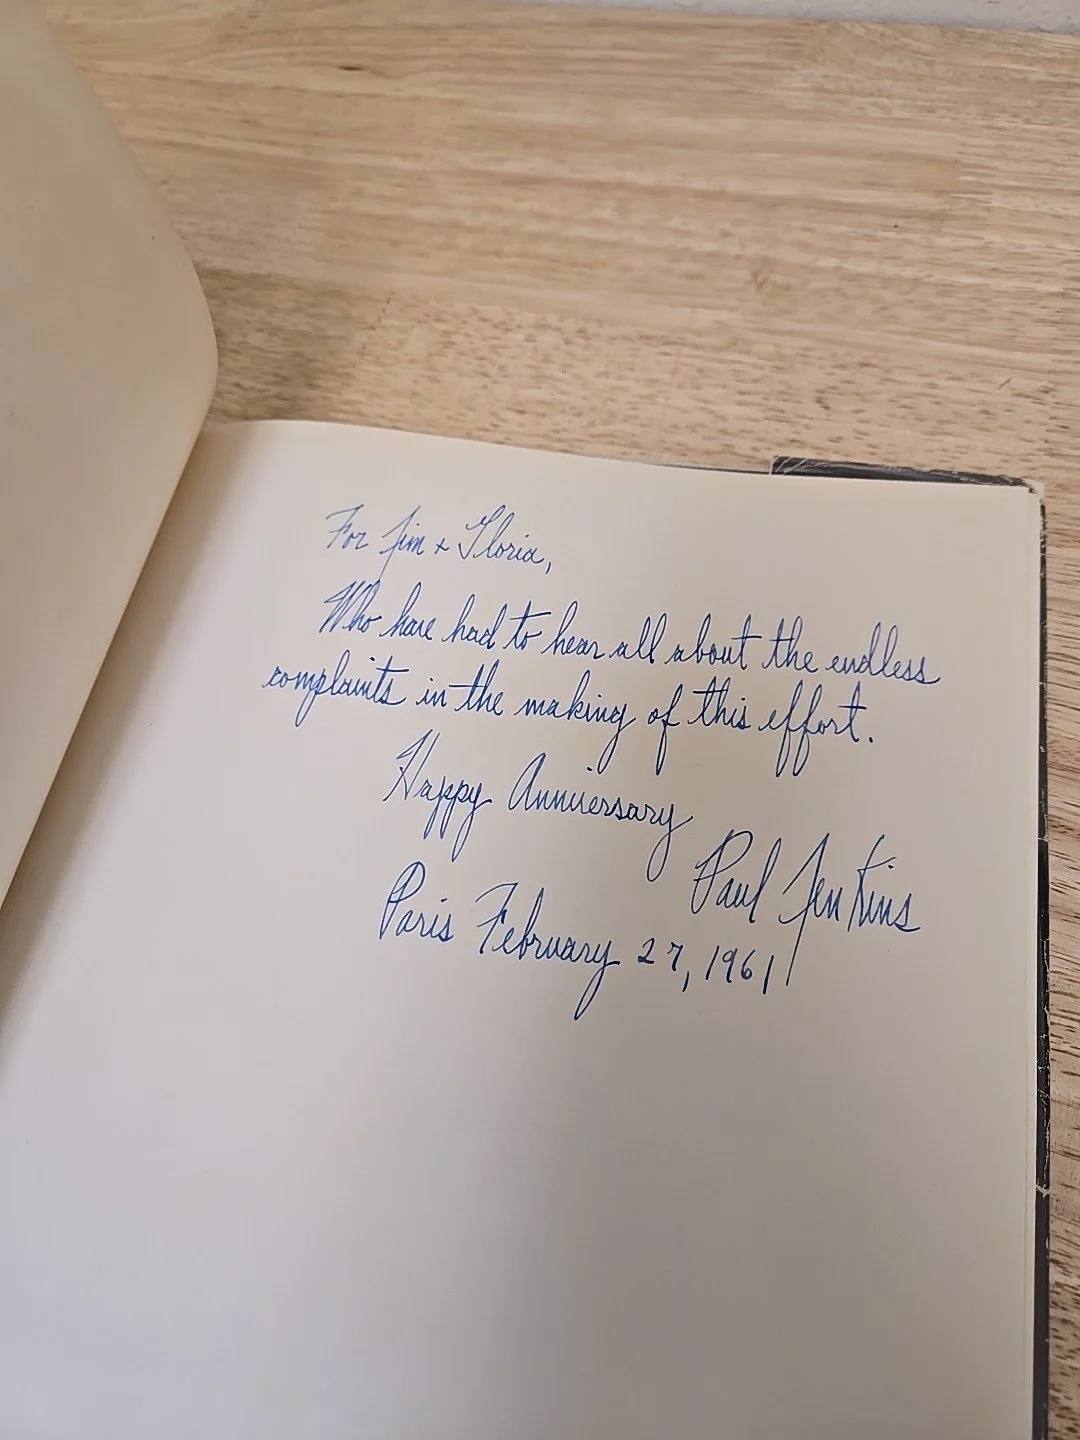 For Jim + Gloria,
Who have had to hear all about the endless
complaints in the making of this effort.
Happy Anniversary
Paul Jenkins
Paris February 27, 1961